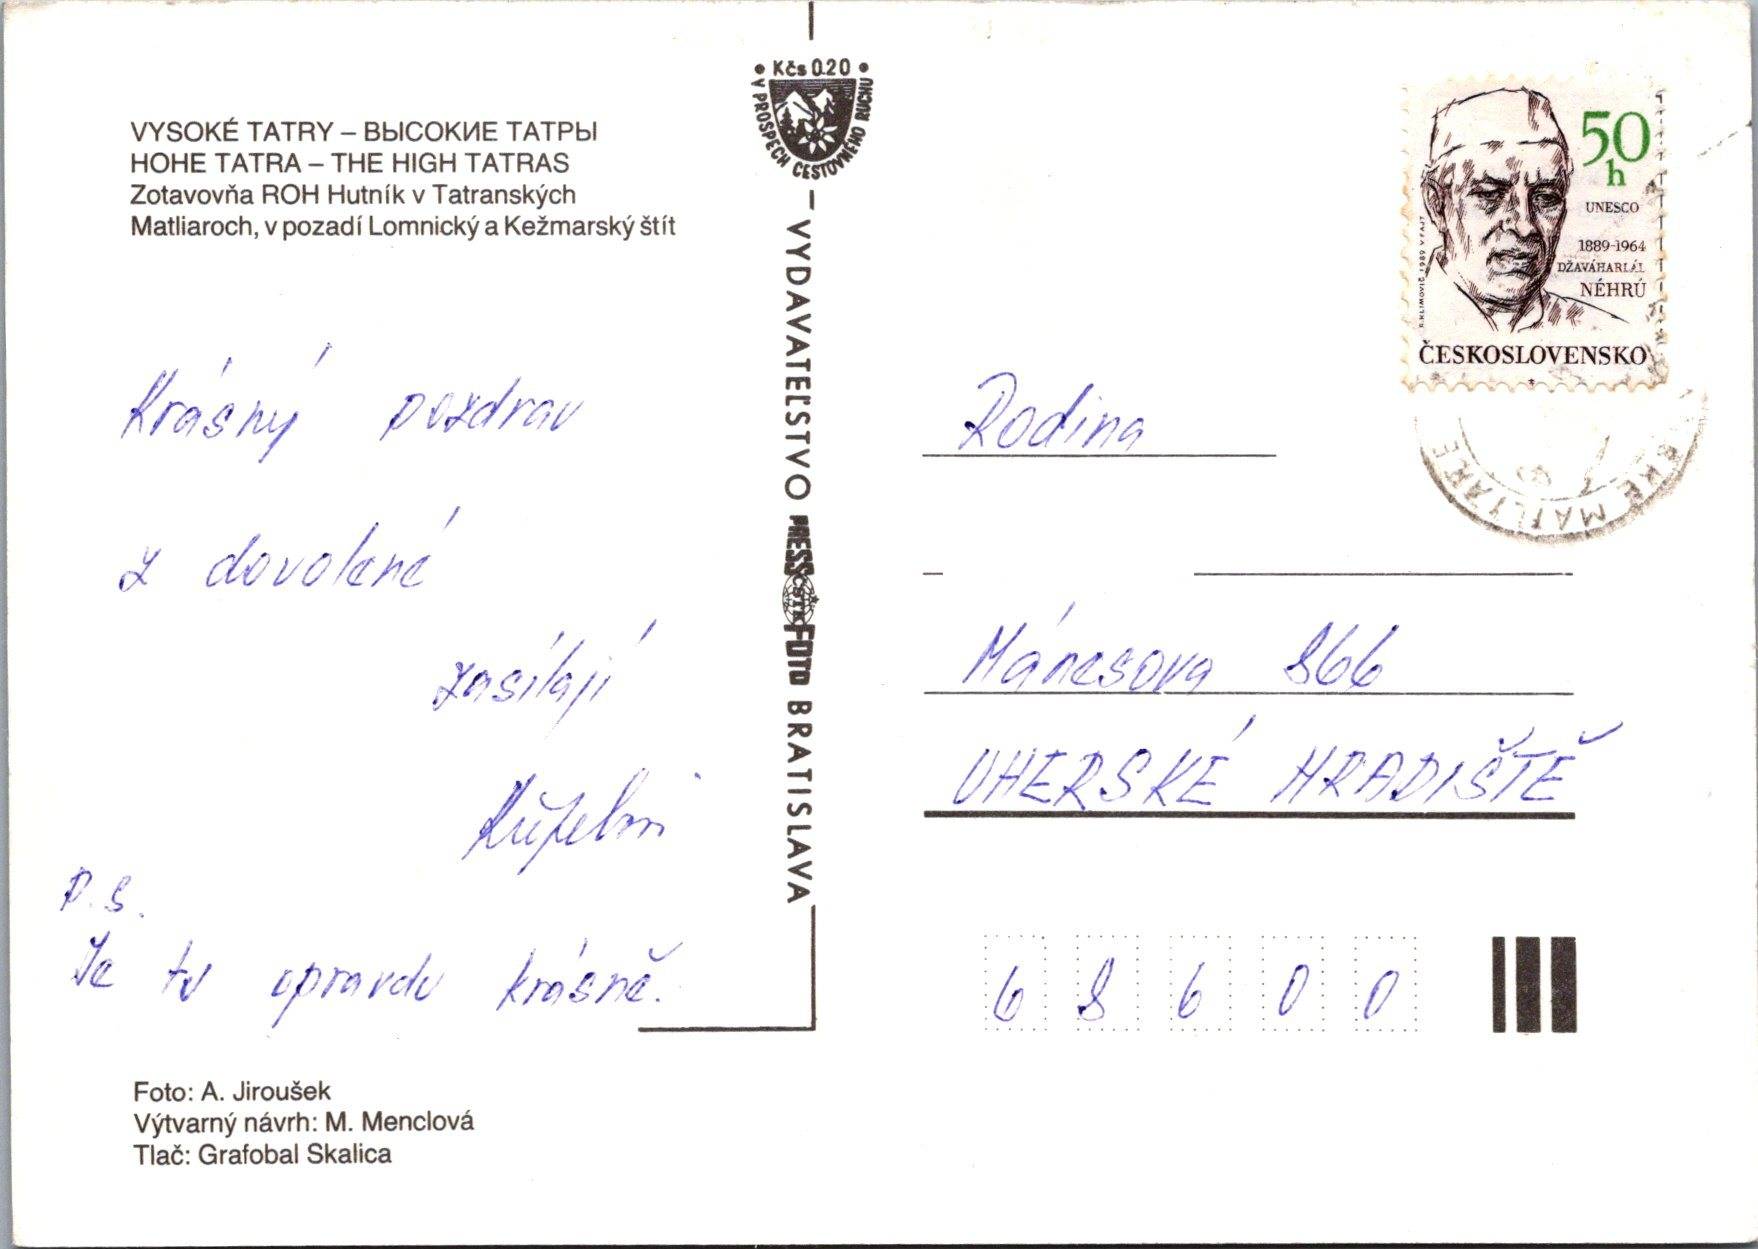 VYSOKÉ TATRY – ВЫСОКИЕ ТАТРЫ
HOHE TATRA – THE HIGH TATRAS
Zotavovňa ROH Hutník v Tatranských
Matliaroch, v pozadí Lomnický a Kežmarský štít
Krásný pozdrav
z dovolené
zasílají
P.S.
Je tu opravdu krásně.
Foto: A. Jiroušek
Výtvarný návrh: M. Menclová
Tlač: Grafobal Skalica
Kčs 0.20
V PROSPECH CESTOVNÉHO RUCHU
VYDAVATEĽSTVO PRESSFOTO BRATISLAVA
ČSTK
50
h
UNESCO
1889-1964
DŽAVÁHARLÁL
NÉHRÚ
R. KLIMOVIČ 1989 V. FAJT
ČESKOSLOVENSKO
MATLIARE
Rodina
Mánesova 866
UHERSKÉ HRADIŠTĚ
68600